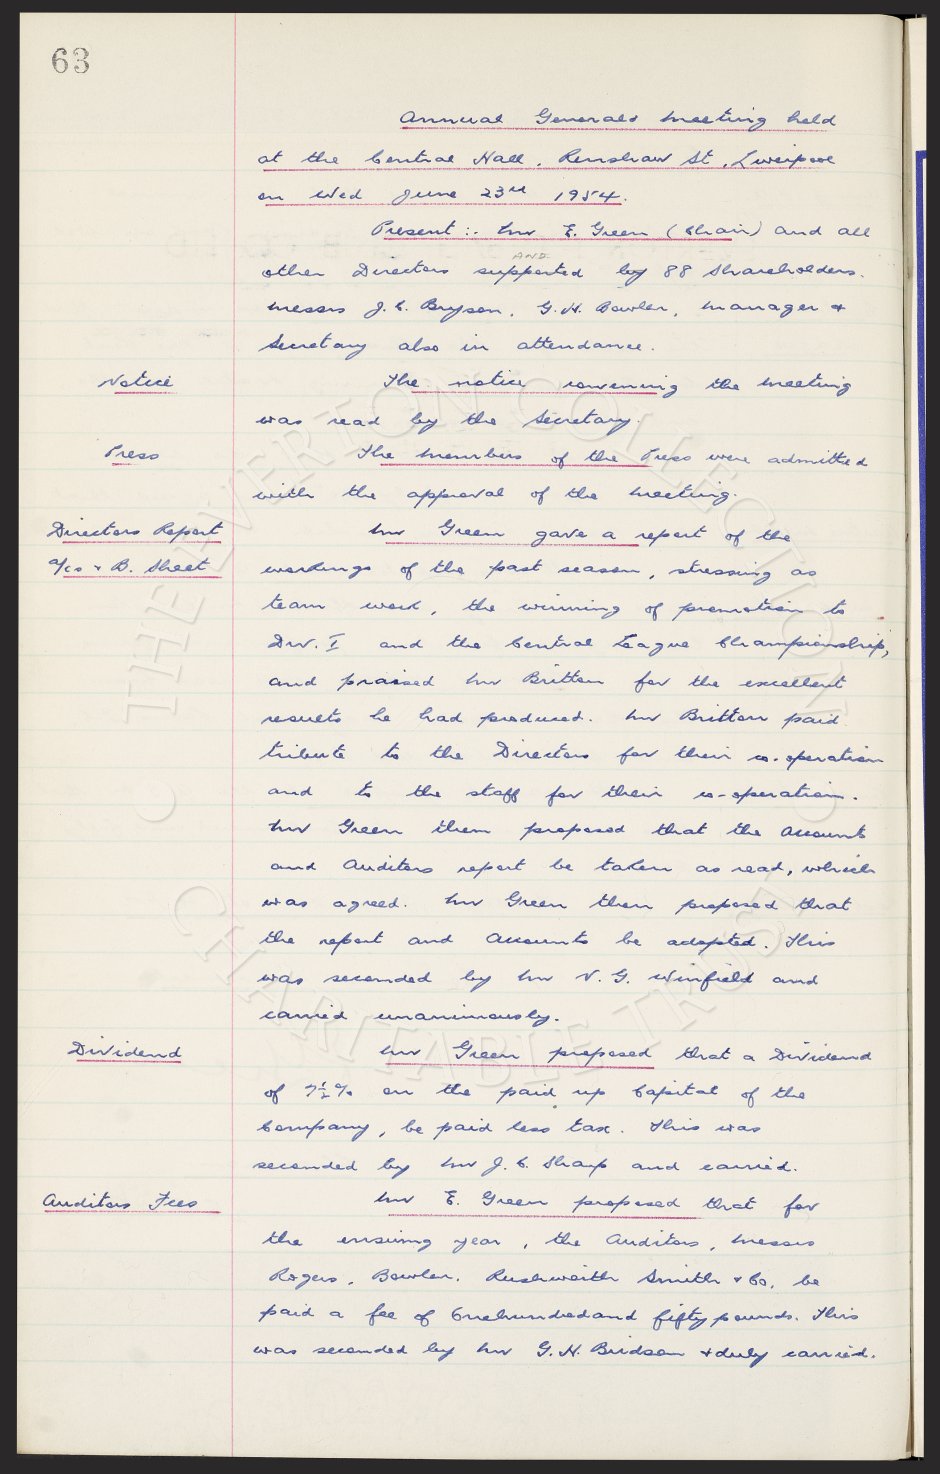 63
Annual General Meeting held
at the Central Hall, Renshaw St, Liverpool
on Wed June 23rd 1954.
Present :- Mr E. Green (Chair) and all
AND
other Directors supported by 88 Shareholders.
Messrs J.C. Bryson, G.H. Bowler, Manager &
Secretary also in attendance.
Notice
The notice convening the meeting
was read by the Secretary.
Press
The members of the Press were admitted
with the approval of the meeting.
Directors Report
a/cs & B. Sheet
Mr Green gave a report of the
workings of the past season, stressing as
team work, the winning of promotion to
Div. I and the Central League Championship,
and praised Mr Britton for the excellent
results he had produced. Mr Britton paid
tribute to the Directors for their co-operation
and to the staff for their co-operation.
Mr Green then proposed that the Accounts
and Auditors report be taken as read, which
was agreed. Mr Green then proposed that
the report and Accounts be adopted. This
was seconded by Mr V. G. Winfield and
carried unanimously.
Dividend
Mr Green proposed that a Dividend
of 7½% on the paid up Capital of the
Company, be paid less tax. This was
seconded by Mr J. C. Sharp and carried.
Auditors Fees
Mr E. Green proposed that for
the ensuing year, the Auditors, Messrs
Rogers, Bowler, Rushworth Smith & Co, be
paid a fee of Onehundredand fifty pounds. This
was seconded by Mr G. H. Bridson & duly carried.
THE EVERTON COLLECTION
CHARITABLE TRUST